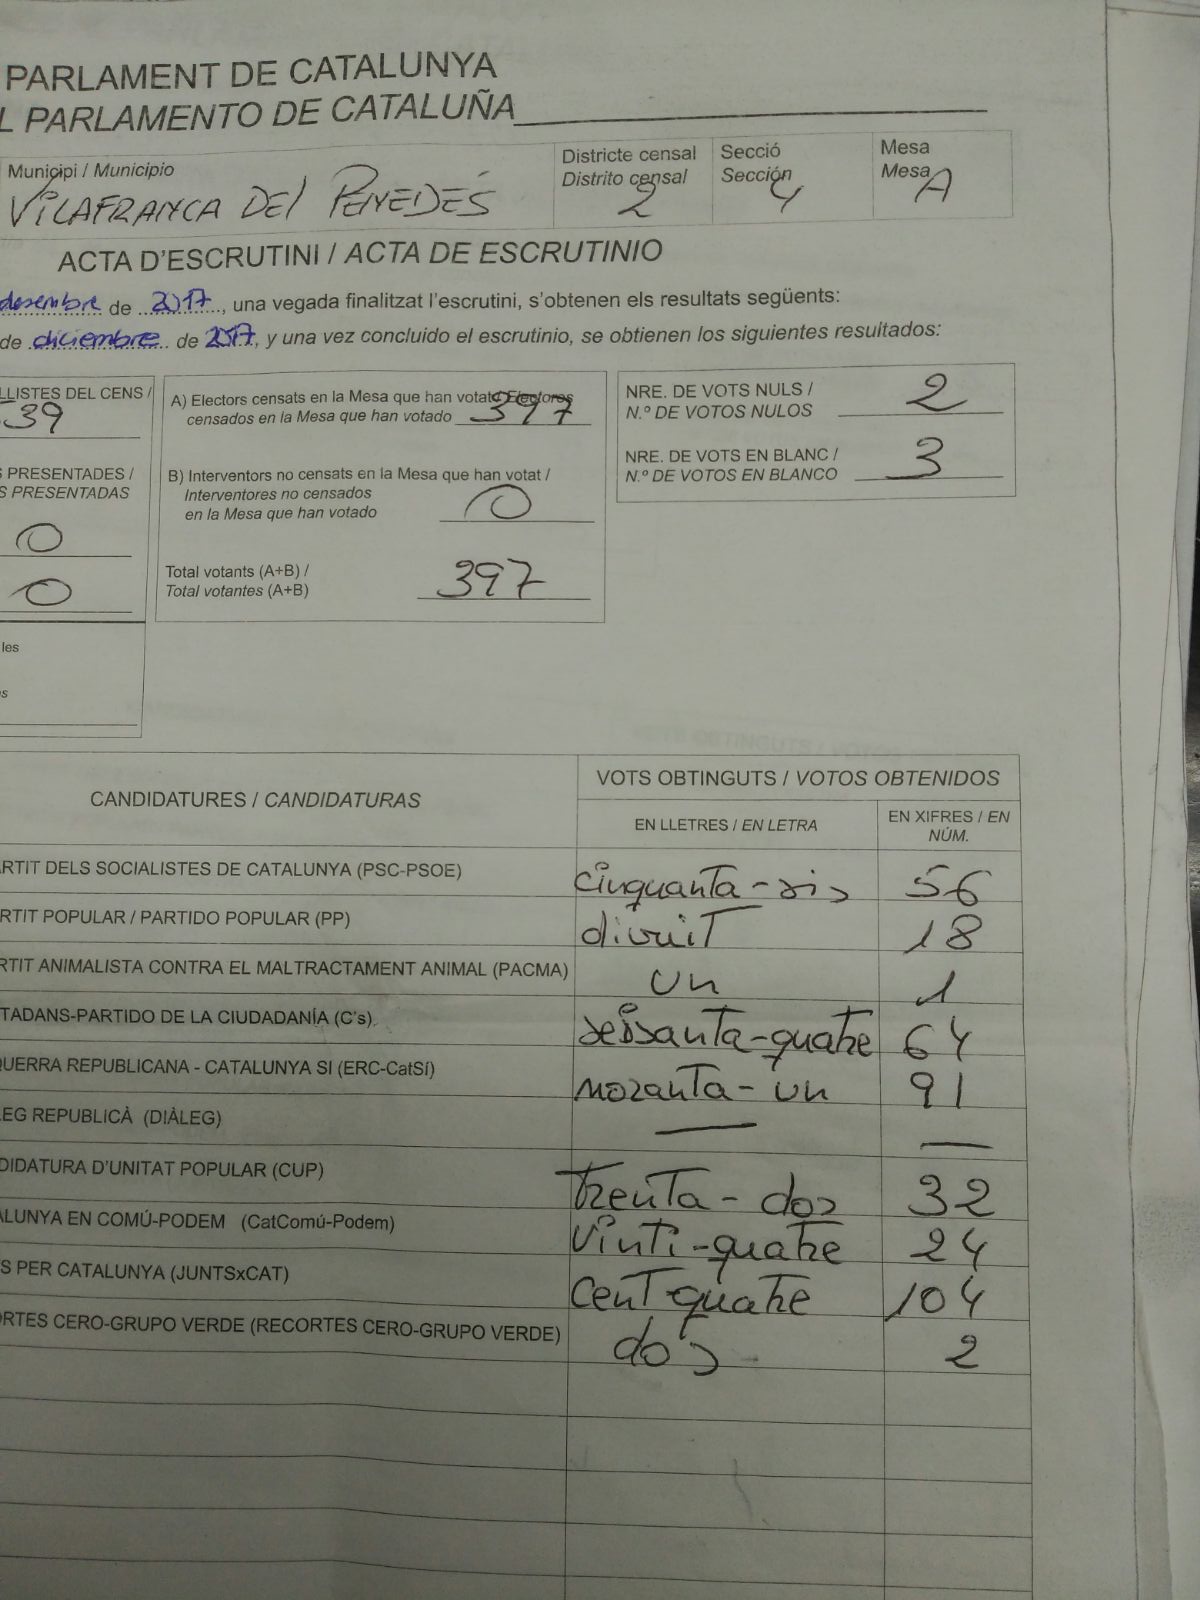 PARLAMENT DE CATALUNYA
L PARLAMENTO DE CATALUÑA
Municipi / Municipio
VILAFRANCA DEL PENEDÉS
Districte censal
Distrito censal
2
Secció
Sección
4
Mesa
Mesa
A
ACTA D'ESCRUTINI / ACTA DE ESCRUTINIO
desembre de 2017, una vegada finalitzat l'escrutini, s'obtenen els resultats següents:
de diciembre de 2017, y una vez concluido el escrutinio, se obtienen los siguientes resultados:
LLISTES DEL CENS /
539
S PRESENTADES /
S PRESENTADAS
0
0
les
s
A) Electors censats en la Mesa que han votat / Electores
censados en la Mesa que han votado 397
B) Interventors no censats en la Mesa que han votat /
Interventores no censados
en la Mesa que han votado 0
Total votants (A+B) /
Total votantes (A+B) 397
NRE. DE VOTS NULS /
N.º DE VOTOS NULOS 2
NRE. DE VOTS EN BLANC /
N.º DE VOTOS EN BLANCO 3
CANDIDATURES / CANDIDATURAS
VOTS OBTINGUTS / VOTOS OBTENIDOS
EN LLETRES / EN LETRA
EN XIFRES / EN
NÚM.
ARTIT DELS SOCIALISTES DE CATALUNYA (PSC-PSOE) cinquanta-sis 56
RTIT POPULAR / PARTIDO POPULAR (PP) divuit 18
RTIT ANIMALISTA CONTRA EL MALTRACTAMENT ANIMAL (PACMA) un 1
TADANS-PARTIDO DE LA CIUDADANÍA (C's) seissanta-quatre 64
QUERRA REPUBLICANA - CATALUNYA SI (ERC-CatSí) noranta-un 91
LEG REPUBLICÀ (DIÀLEG) — —
DIDATURA D'UNITAT POPULAR (CUP) trenta-dos 32
ALUNYA EN COMÚ-PODEM (CatComú-Podem) vinti-quatre 24
S PER CATALUNYA (JUNTSxCAT) cent quatre 104
ORTES CERO-GRUPO VERDE (RECORTES CERO-GRUPO VERDE) dos 2